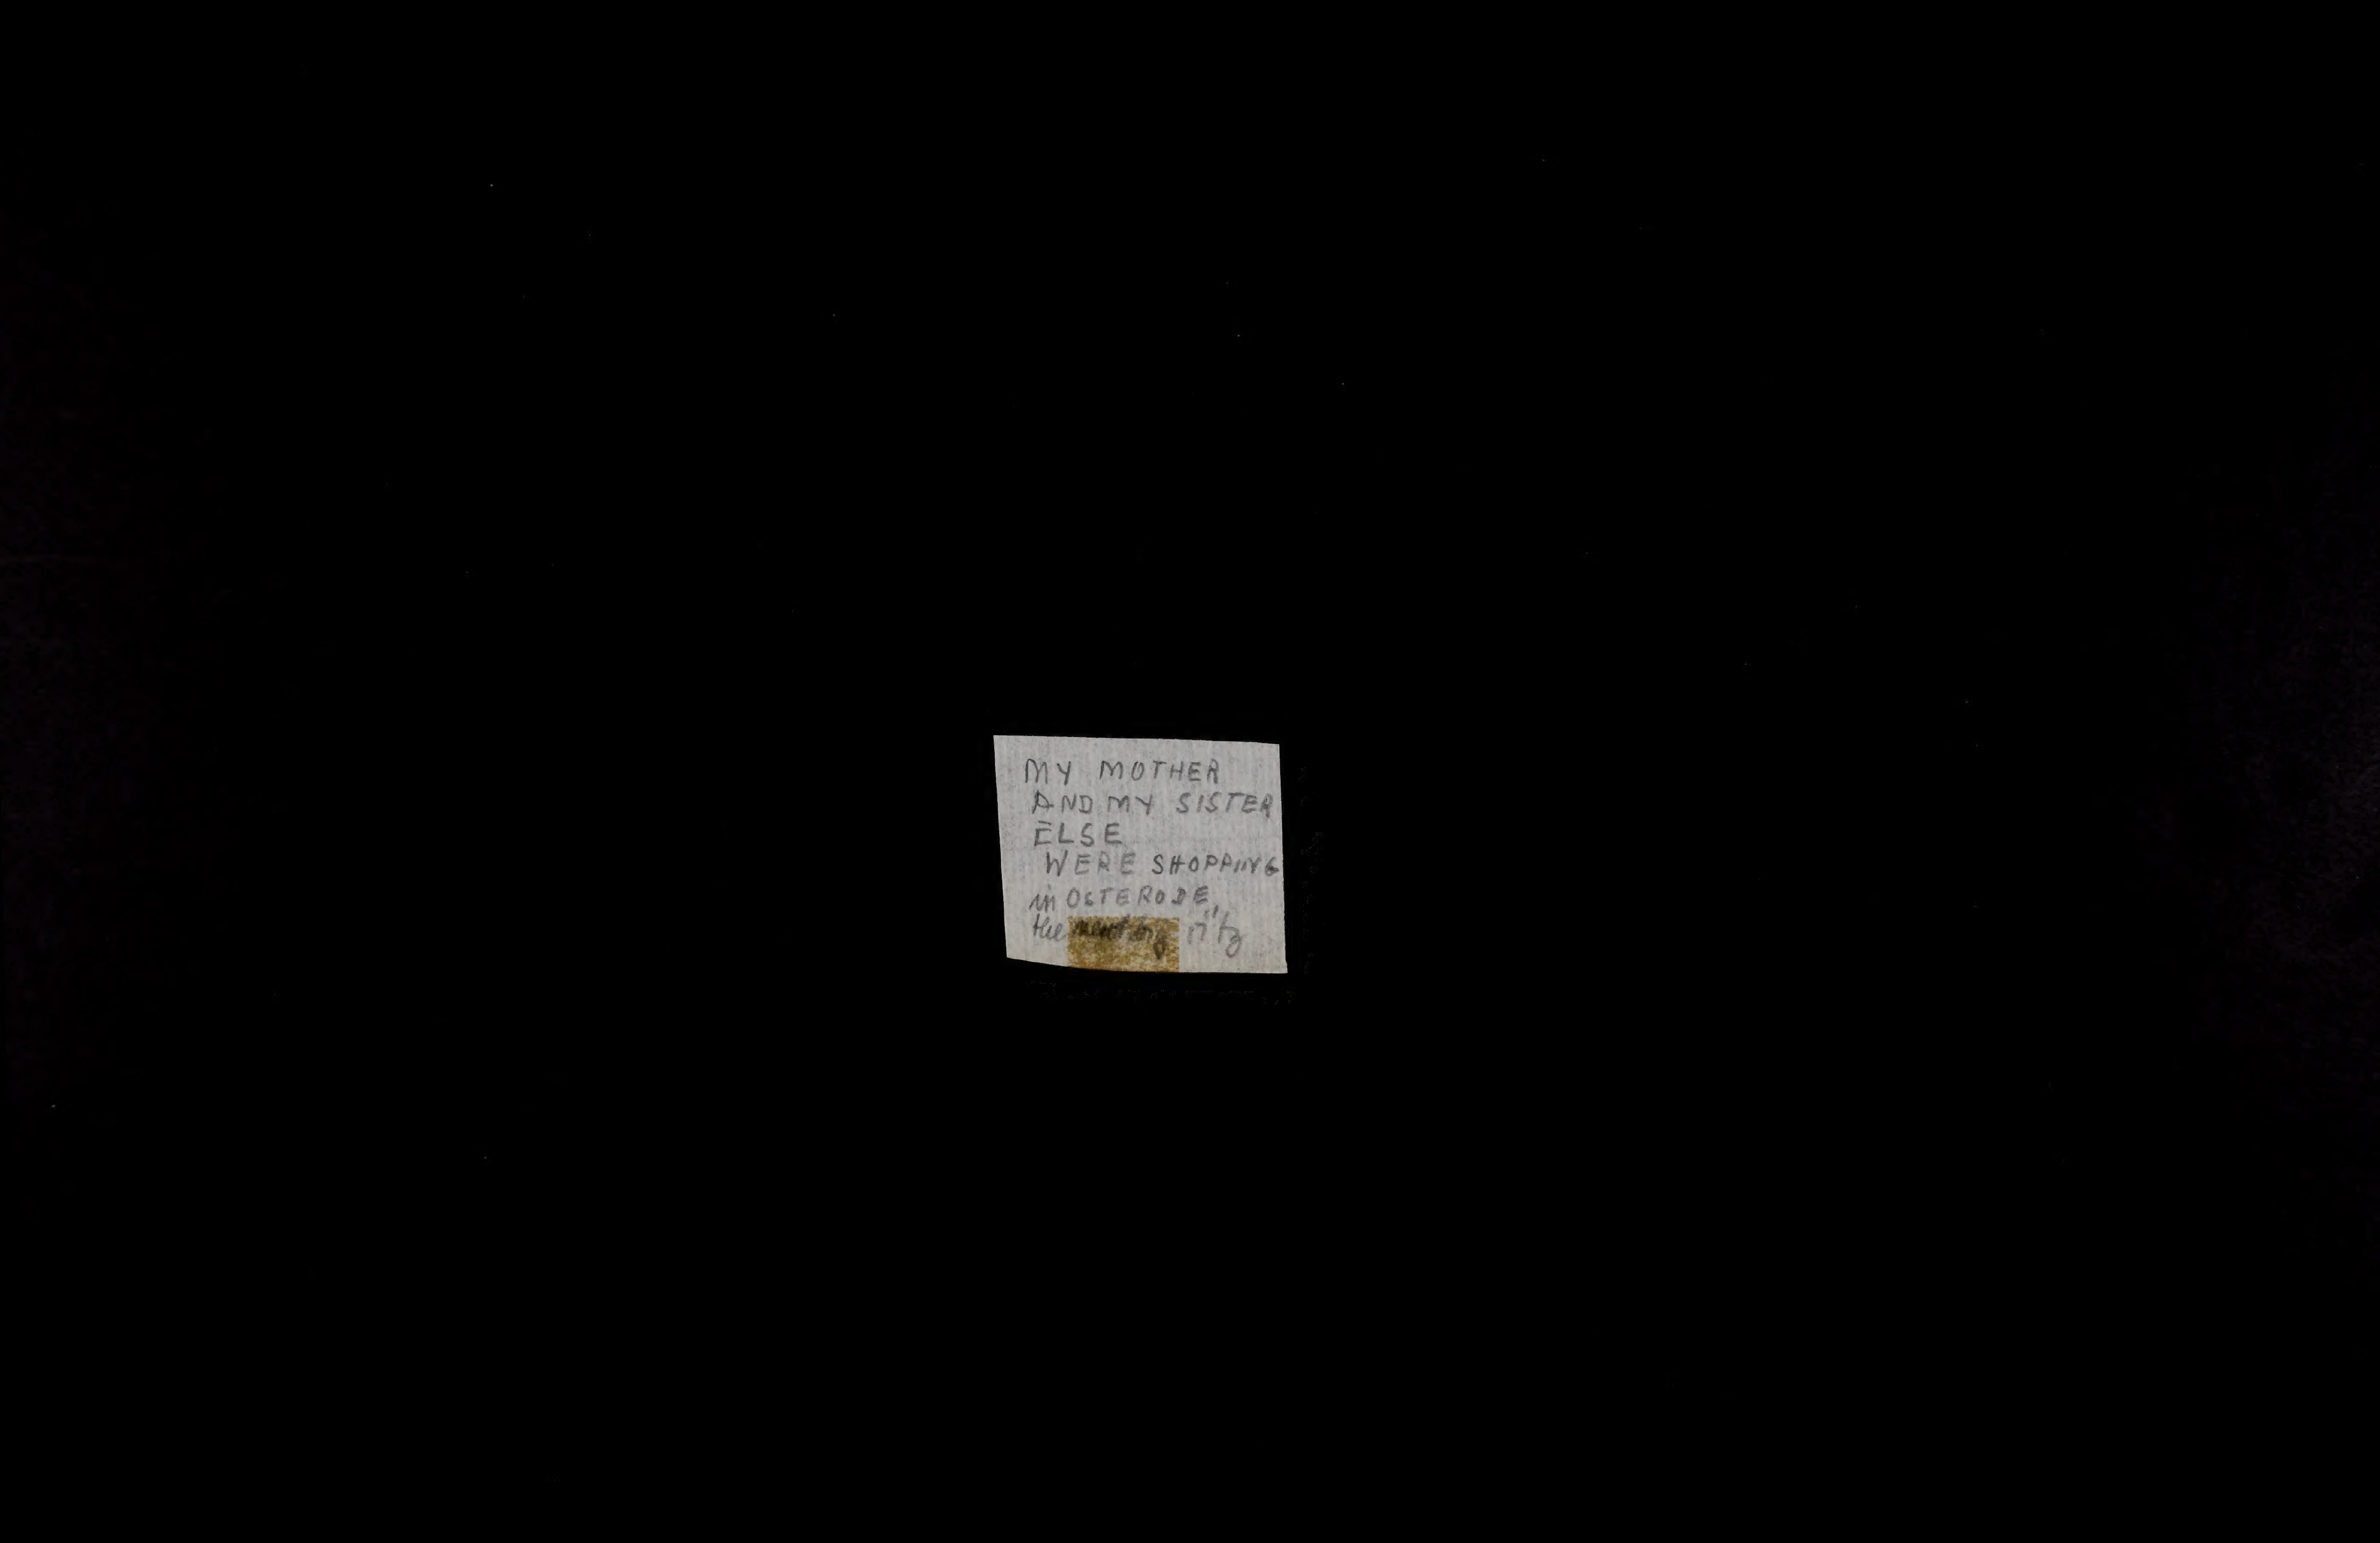 MY MOTHER
AND MY SISTER
ELSE
WERE SHOPPING
in OSTERODE
the